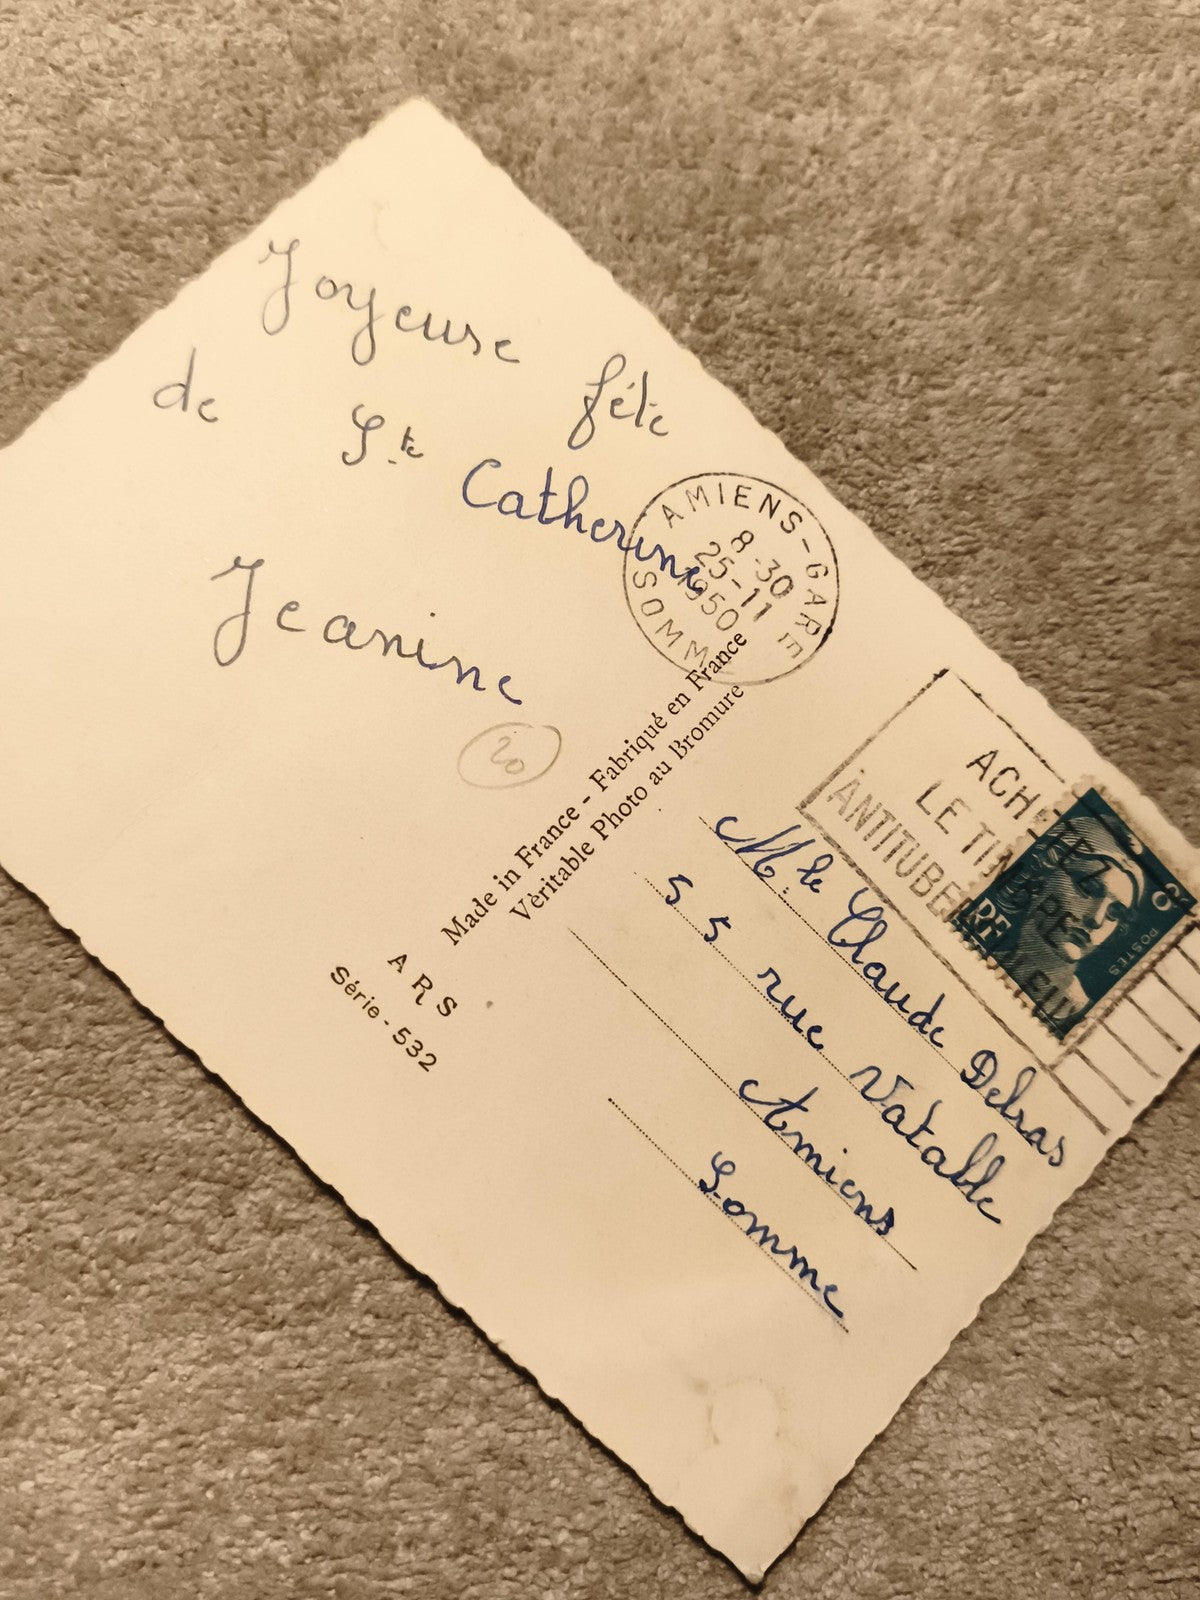 Joyeuse fête
de Ste Catherine
Jeanine
20
AMIENS-GARE
8.30
25-11
1950
SOMME
Made in France - Fabriqué en France
Véritable Photo au Bromure
ARS
Série - 532
ACHETEZ
LE TIMBRE
ANTITUBERCULEUX
RF
POSTES
Mlle Claude Delras
55 rue Vatable
Amiens
Somme